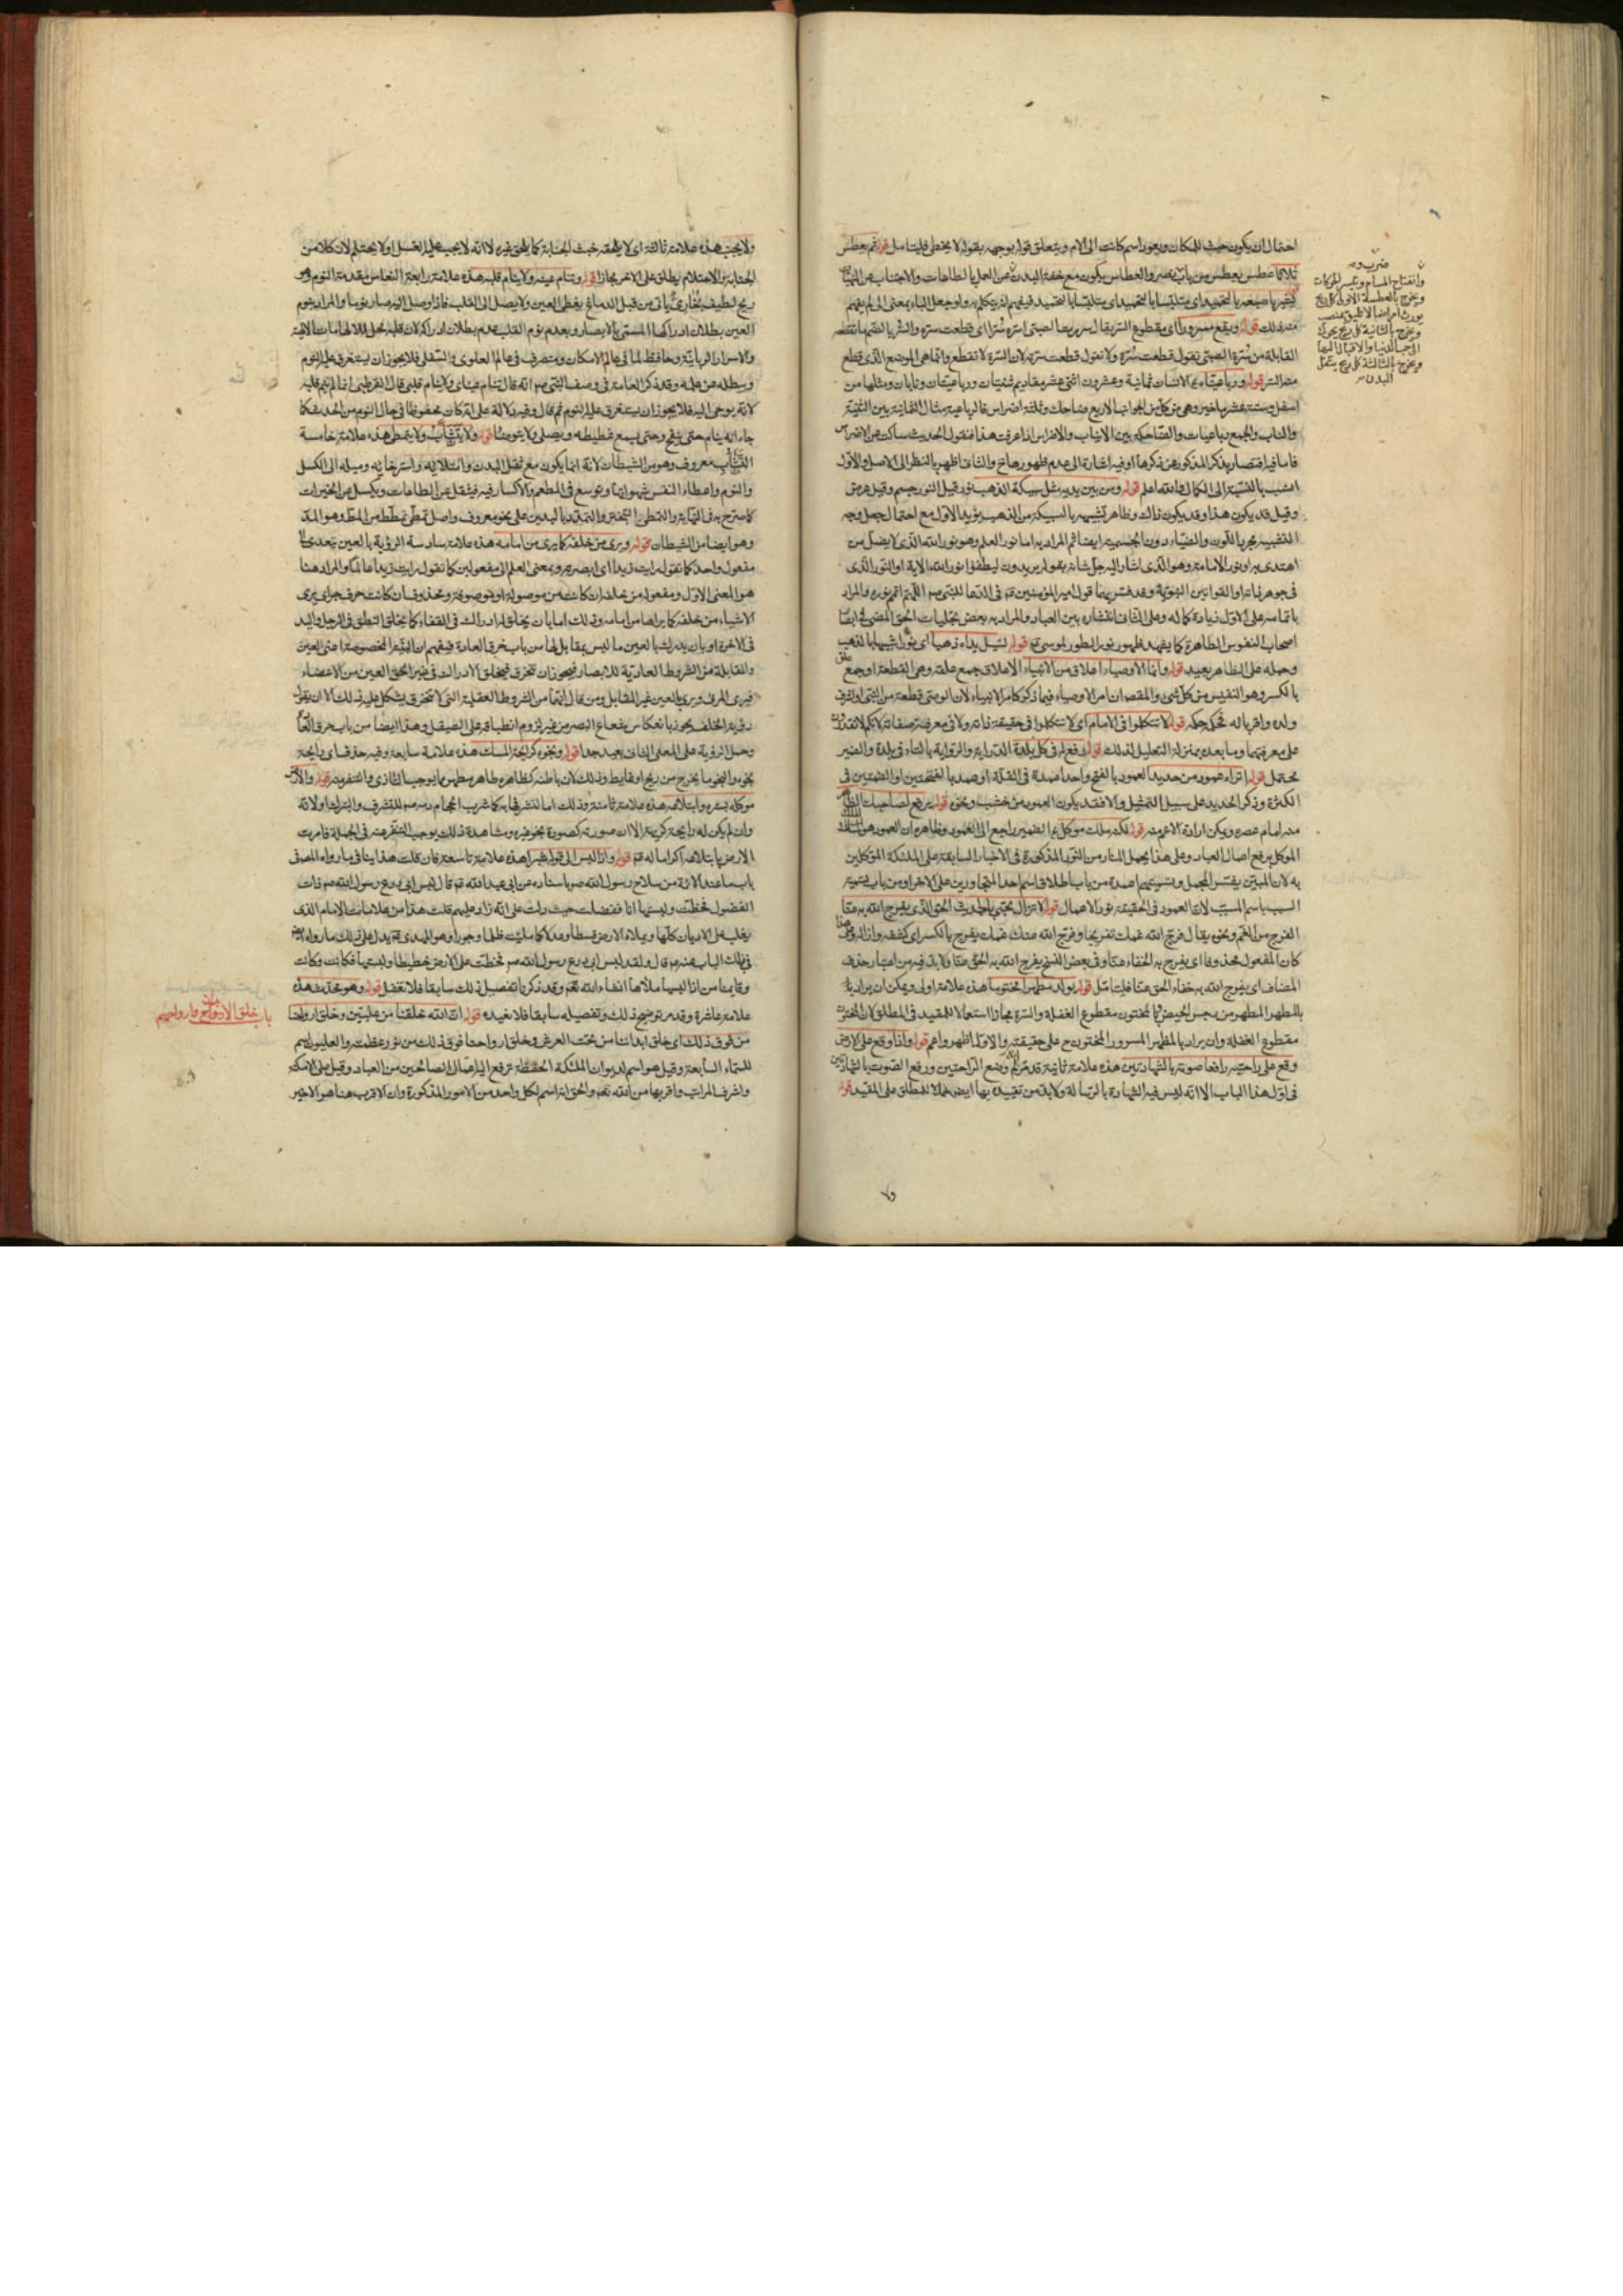 احتمال ان يكون حيث للمكان ويعود اسم كانت الى الام ويتعلق قوله بوجهه بقوله لا يخطى فليتامل قوله ثم يعطس
ثلاثا عطس يعطس من باب نصر وضرب والعطاس يكون مع خفة البدن وانفتاح المسام وتيسر الحركات
القابلة من سرة الصبى تقول قطعت سره ولا تقول قطعت سرته لان السرة لا تقطع وانما هى الموضع الذى قطع
منه السر قوله ورباعيتاه للانسان ثمانية وعشرون
اسفل وستة عشر باخير وهى من كل من الجوانب الاربع ضاحك وثلثة اضراس
والناب والجمع رباعيات والضاحكة بين الانياب والاضراس اذا عرفت هذا فنقول الحديث ساكت عن الاضراس
فاما فيه اقتصار بذكر المذكور عن ذكرها او فيه اشارة الى عدم ظهورها ح والثانى اظهر بالنظر الى الاصل والاول
انسب بالنسبة الى الكمال والله اعلم قوله ومن بين يديه مثل سبيكة الذهب نور قيل النور جسم وقيل عرض
وقيل قد يكون هذا وقد يكون ذاك وظاهر تشبيهه بالسبيكة من الذهب يؤيد الاول مع احتمال جعل وجه
التشبيه مجرد اللون والضياء دون الجسمية ايضا ثم المراد به اما نور العلم وهو نور الله الذى لا يضل من
اهتدى به او نور الامامة وهو الذى اشار اليه جل شانه بقوله يريدون ليطفؤا نور الله الاية او النور الذى
اصحاب النفوس الطاهرة كما يشهد ظهور نور الطور لموسى ع قوله تسيل يداه ذهبا اى نورا شبيها بالذهب
وحمله على الظاهر بعيد قوله وانما الاوصياء اعلاق من الانبياء الاعلاق جمع علقة وهى القطعة او جمع علق
بالكسر وهو النفيس من كل شىء والمقصود ان امر الاوصياء فيما ذكر كامر الانبياء
قوله لا تتكلموا فى الامام اى لا تتكلموا فى حقيقة ذاته ولا فى معرفة صفاته لانكم لا تقدرون
على معرفتها وما بعده بمنزلة التعليل لذلك قوله رفع له فى كل بلدة
قوله اتراه عمودا من حديد العمود بالفتح واحد اعمدة فى القلة
الكثرة وذكر الحديد على سبيل التمثيل والا فقد يكون العمود من خشب ونحوه قوله يرفع لصاحبك الظاهر
منه امام عصره ويمكن ارادة الاعم منه قوله لكنه ملك موكل
الموكل برفع اعمال العباد وعلى هذا يحمل المنار من النور المذكورة فى الاخبار السابقة على الملئكة الموكلين
به لان المبين يفسر المجمل وتسميتهم اعمدة من باب اطلاق اسم احد المتجاورين على الاخر او من باب تسمية
السبب باسم المسبب لان العمود فى الحقيقة نور الاعمال قوله لا تزال تجئ بالحديث الحق الذى يفرج الله به عنا
الفرج من الغم ونحوه يقال فرج الله غمك تفريجا وفرج الله عنك غمك يفرج بالكسر اى كشفه
كان المفعول محذوفا اى يفرج به الخفاء عنا وفى بعض النسخ يفرج الله به الحق عنا ولا بد فيه من اعتبار حذف
المضاف اى يفرج الله به خفاء الحق عنا فليتامل قوله يولد مطهرا مختونا هذه علامة اولى ويمكن ان يراد
قوله واذا وقع على الارض
وقع على راحتيه رافعا صوته بالشهادتين هذه علامة ثانية قد مر وضع الراحتين ورفع الصوت بالشهادتين
فى اول هذا الباب الا انه ليس فيه الشهادة بالرسالة ولا بد من تقييده بها ايضا حملا للمطلق على المقيد قوله
ولا يجنب هذه علامة ثالثة اى لا يلحقه خبث الجنابة كما يلحق غيره لا انه لا يجب عليه الغسل او لا يحتلم لان كلا من
الجنابة والاحتلام يطلق على الاخر مجازا قوله وتنام عينه ولا ينام قلبه هذه علامة رابعة النعاس مقدمة النوم وهو
ريح لطيف بخارى ياتى من قبل الدماغ يغطى العين ولا يصل الى القلب فاذا وصل اليه صار نوما والمراد بنوم
العين بطلان ادراكها المسمى بالابصار وبعدم نوم القلب عدم بطلان ادراكه لان قلبه محل للالهامات الالهية
والاسرار الربانية وحافظ لما فى عالم الامكان ومتصرف فى عالم العلوى والسفلى فلا يجوز ان يستغرق عليه النوم
ويبطله عن عمله وقد ذكر العامة فى وصف النبى ص انه قال تنام عيناى ولا ينام قلبى قال القرطبى انما لم ينم قلبه
لانه يوحى اليه فلا يجوز ان يستغرق عليه النوم ثم قال وفيه دلالة على انه كان محفوظا فى حال النوم من الحدث كما
جاء انه ينام حتى ينفخ وحتى يسمع غطيطه ويصلى ولا يتوضا قوله ولا يتثأب ولا يتمطى هذه علامة خامسة
التثأب معروف وهو من الشيطان لانه انما يكون مع ثقل البدن وامتلائه واسترخائه وميله الى الكسل
والنوم واعطاء النفس شهواتها وتوسع فى المطعم والاكثار فيه فيثقل عن الطاعات ويكسل عن الخيرات
كما صرح به فى النهاية والتمطى التبختر والتمدد باليدين على نحو معروف واصل تمطى تمطط من المط وهو المد
وهو ايضا من الشيطان قوله ويرى من خلفه كما يرى من امامه هذه علامة سادسة الرؤية بالعين يتعدى الى
مفعول واحد كما تقول رايت زيدا اى ابصرته وبمعنى العلم الى مفعولين كما تقول رايت زيدا عالما والمراد هنا
هو المعنى الاول ومفعوله من خلفه ان كانت من موصولة او موصوفة ومحذوف ان كانت حرف جر اى يرى
الاشياء من خلفه كما يراها من امامه وذلك اما بان يخلق له ادراك فى القفاء كما يخلق النطق فى الرجل واليد
فى الاخرة او بان يدرك بالعين ما ليس بمقابل لها من باب خرق العادة
والمقابلة من الشروط العادية للابصار فيجوز ان تنخرق فيخلق الادراك فى غير الحق العين من الاعضاء
فيرى المرئى ويرى بالعين غير المقابل ومن قال انها من الشروط العقلية التى لا تنخرق يشكل عليه ذلك الا ان يقول
رؤية الخلف يجوز بانعكاس شعاع البصر من غير لزوم انطباقه على الصيقل وهذا ايضا من باب خرق العادة
وحمل الرؤية على المعنى الثانى بعيد جدا قوله ونجوه كرائحة المسك هذه علامة سابعة وفيه حذف اى رائحة
نجوه والنجو ما يخرج من ريح او غايط وذلك لان باطنه كظاهره طاهر مطهر مما يوجب التاذى والتنفر منه قوله والارض
موكلة بستره وابتلاعه هذه علامة ثامنة وذلك اما لتشرفها به كما شرب الحجام دمه ص للتشرف والتبرك او لانه
وان لم يكن له رايحة كريهة الا ان صورته كصورة نجو غيره ومشاهدة ذلك يوجب التنفر عنه فى الجملة فامرت
الارض بابتلاعه اكراما له ع قوله واذا لبس الى قوله شبرا هذه علامة تاسعة فان قلت هذا ينافى ما رواه المصنف
باب ما عند الائمة من سلاح رسول الله ص باسناده عن ابى عبد الله ع قال لبس ابى درع رسول الله ص ذات
الفضول فخطت ولبستها انا ففضلت حيث دلت على انه زاد عليهم قلت هذا من علامات الامام الذى
يغلب على الاديان كلها ويملاء الارض قسطا وعدلا كما ملئت ظلما وجورا وهو المهدى ع يدل على ذلك ما رواه ايضا
فى ذلك الباب عنه ع قال ولقد لبس ابى درع رسول الله ص فخطت على الارض خطيطا ولبستها انا فكانت وكانت
وقايمنا من اذا لبسها ملأها انشاء الله تعم وقد ذكرنا تفصيل ذلك سابقا فلا نغفل قوله وهو محدث هذه
علامة عاشرة وقد مر توضيح ذلك وتفصيله سابقا فلا نعيده قوله ان الله خلقنا من عليين وخلق ارواحنا
من فوق ذلك اى خلق ابداننا من تحت العرش وخلق ارواحنا فوق ذلك من نور عظمته والعليون اسم
للسماء السابعة وقيل هو اسم لديوان الملئكة الحفظة ترفع اليه اعمال الصالحين من العباد وقيل اعلى الامكنة
واشرف المراتب واقربها من الله تعم والحق انه اسم لكل واحد من الامور المذكورة وان الاقرب هنا هو الاخير
باب خلق الابدان الائمة وارواحهم